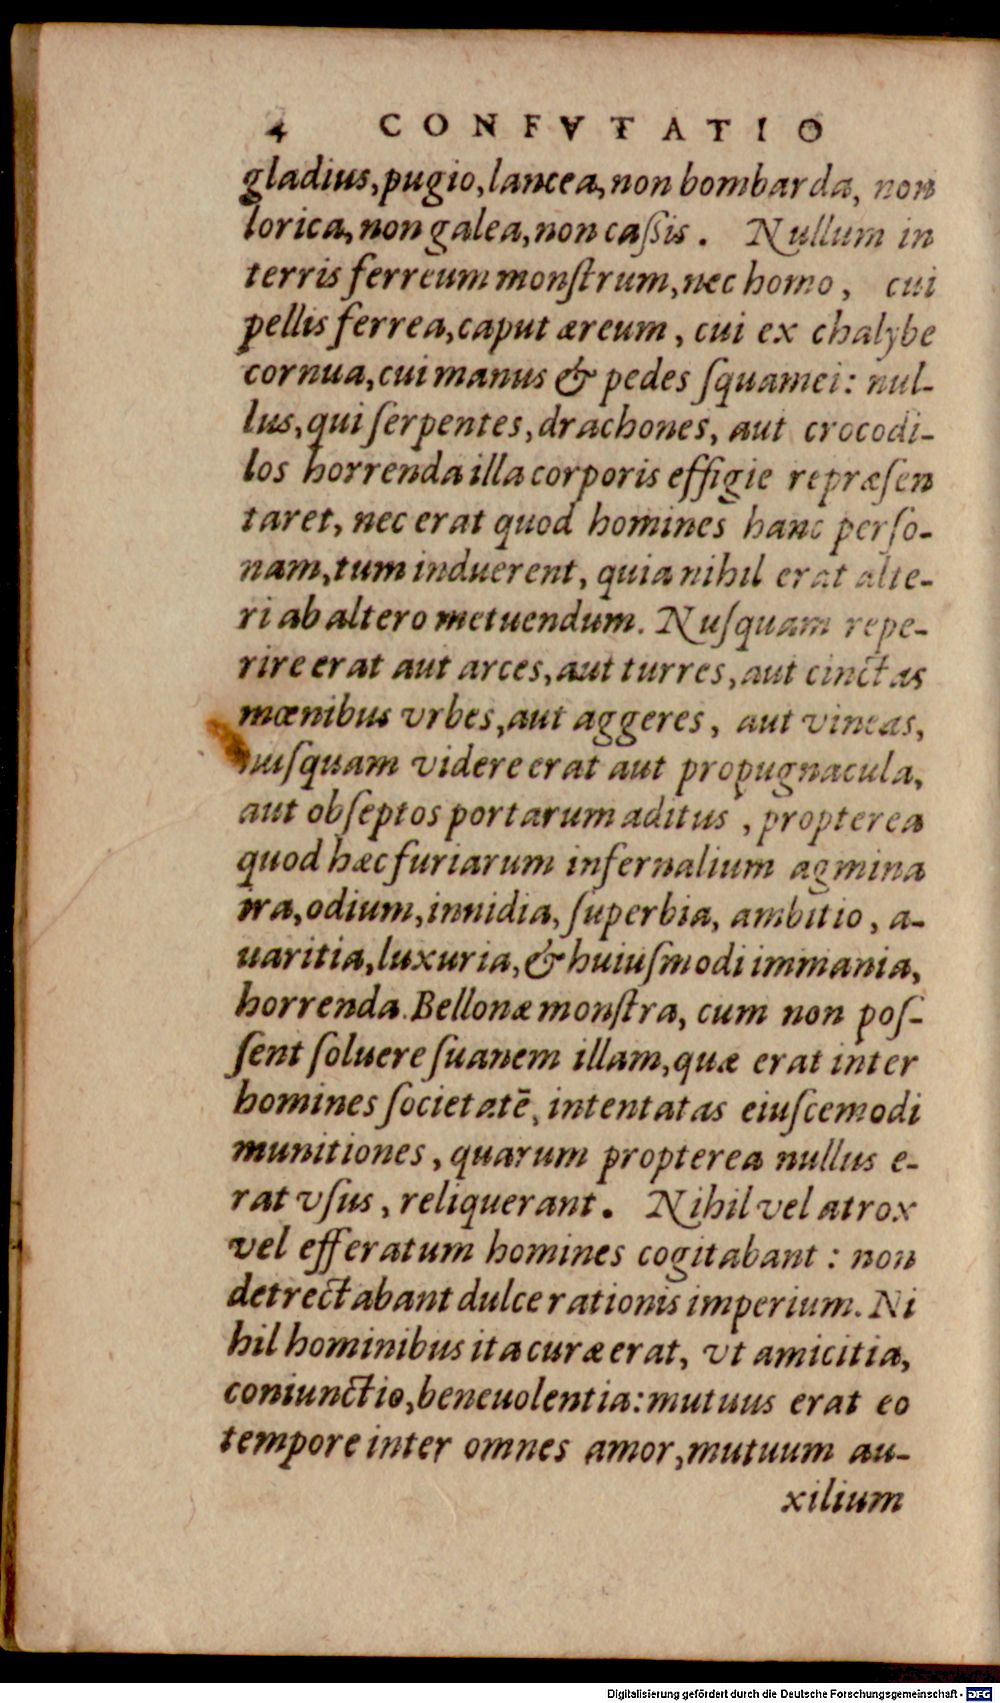 4 CONFVTATIO
gladius, pugio, lancea, non bombarda, non
lorica, non galea, non caſsis. Nullum in
terris ferreum monſtrum, nec homo, cui
pellis ferrea, caput æreum, cui ex chalybe
cornua, cui manus & pedes ſquamei: nul-
lus, qui ſerpentes, drachones, aut crocodi-
los horrenda illa corporis effigie repræſen
taret, nec erat quod homines hanc perſo-
nam, tum induerent, quia nihil erat alte-
ri ab altero metuendum. Nuſquam repe-
rire erat aut arces, aut turres, aut cinctas
mœnibus vrbes, aut aggeres, aut vineas,
nuſquam videre erat aut propugnacula,
aut obſeptos portarum aditus, propterea
quod hæc furiarum infernalium agmina
ira, odium, inuidia, ſuperbia, ambitio, a-
uaritia, luxuria, & huiuſmodi immania,
horrenda. Bellonæ monſtra, cum non poſ-
ſent ſoluere ſuauem illam, quæ erat inter
homines ſocietatē, intentatas eiuſcemodi
munitiones, quarum propterea nullus e-
rat vſus, reliquerant. Nihil vel atrox
vel efferatum homines cogitabant: non
detrectabant dulce rationis imperium. Ni
hil hominibus ita curæ erat, vt amicitia,
coniunctio, beneuolentia: mutuus erat eo
tempore inter omnes amor, mutuum au-
xilium
Digitalisierung gefördert durch die Deutsche Forschungsgemeinschaft - DFG